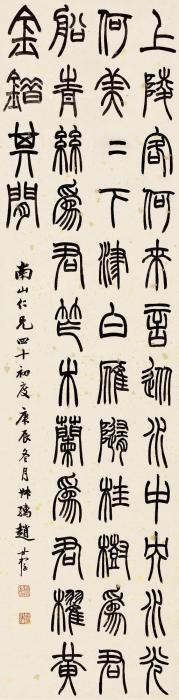 上陵客何來言從水中央水光
何美二下津白雁隨桂樹為君
船青絲為君笮木蘭為君櫂黃
金錯其間
南山仁兄四十初度庚辰冬月叔孺趙時棡